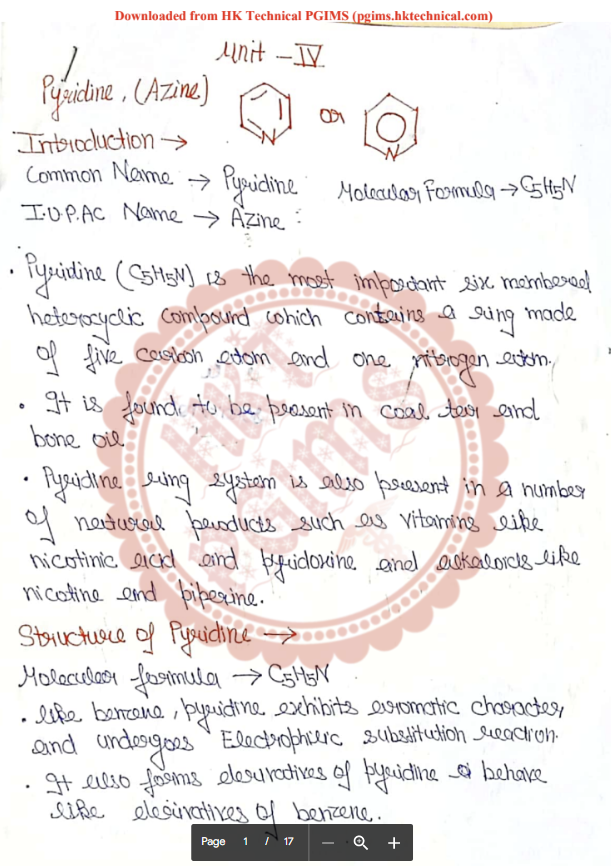 Downloaded from HK Technical PGIMS (pgims.hktechnical.com)
Unit - IV
Pyridine, (Azine)
N or N
Introduction →
Common Name → Pyridine Molecular Formula → C5H5N
I.U.P.AC Name → Azine :
• Pyridine (C5H5N) is the most important six membered
heterocyclic compound which contains a ring made
of five carbon atom and one nitrogen atom.
• It is found to be present in coal tar and
bone oil
• Pyridine ring system is also present in a number
of natural products such as vitamins like
nicotinic acid and pyridoxine and alkaloids like
nicotine and piperine.
Structure of Pyridine →
Molecular formula → C5H5N
• like benzene, pyridine exhibits aromatic character
and undergoes Electrophilic substitution reaction.
• It also forms derivatives of pyridine behave
like derivatives of benzene.
HKT
PGIMS
Page 1 / 17 — +